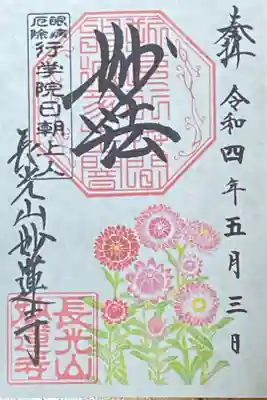 奉拝 令和四年五月三日
妙法
眼病
厄除
行学院日朝上人
長光山妙蓮寺
長光山
妙蓮寺